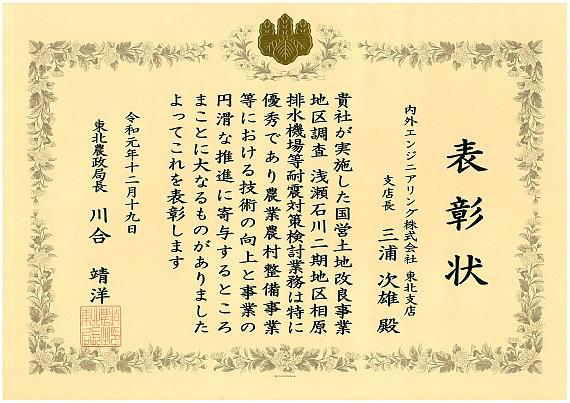 表彰状
内外エンジニアリング株式会社 東北支店
支店長 三浦 次雄 殿
貴社が実施した国営土地改良事業
地区調査 浅瀬石川二期地区相原
排水機場等耐震対策検討業務は特に
優秀であり農業農村整備事業
等における技術の向上と事業の
円滑な推進に寄与するところ
まことに大なるものがありました
よってこれを表彰します
令和元年十二月十九日
東北農政局長 川合 靖洋